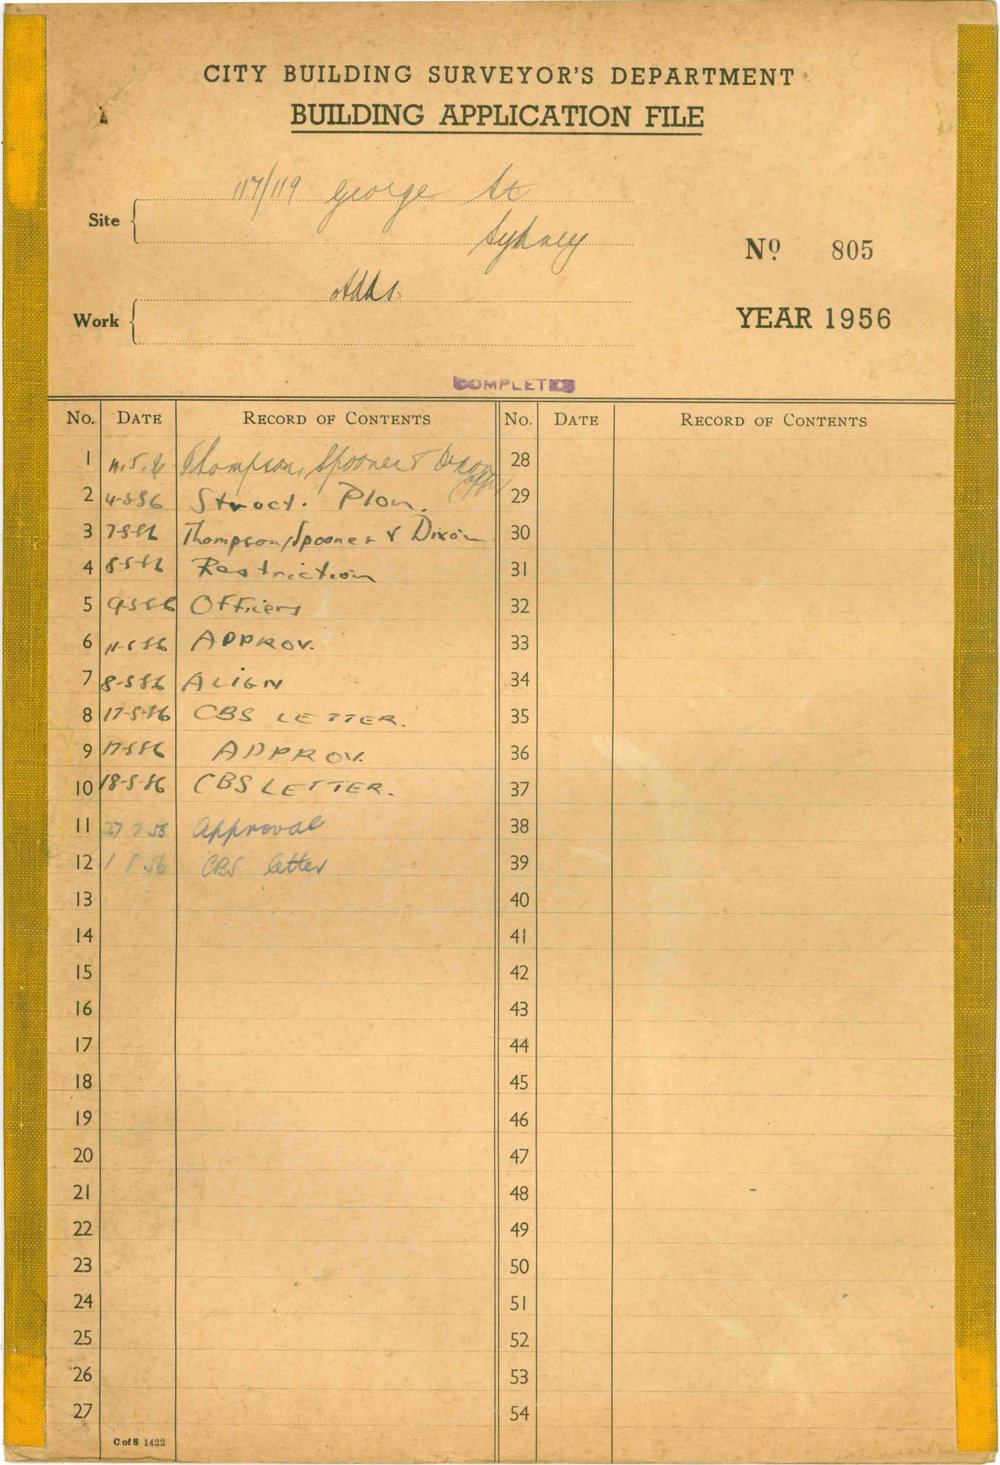 CITY BUILDING SURVEYOR'S DEPARTMENT
BUILDING APPLICATION FILE
117/119 George St
Site
Sydney
No 805
Adds.
Work
YEAR 1956
COMPLETED
No. DATE RECORD OF CONTENTS No. DATE RECORD OF CONTENTS
1 Thompson, Spooner & Dixon 28
2 4-5-56 Struct. Plan. 29
3 7-5-56 Thompson, Spooner & Dixon 30
4 8-5-56 Restriction 31
5 9-5-56 Officers 32
6 11-5-56 APPROV. 33
7 8-5-56 ALIGN 34
8 17-5-56 CBS LETTER. 35
9 17-5-56 APPROV. 36
10 18-5-56 CBS LETTER. 37
11 27 7 56 Approval 38
12 1 8 56 CBS letter 39
13 40
14 41
15 42
16 43
17 44
18 45
19 46
20 47
21 48
22 49
23 50
24 51
25 52
26 53
27 54
C of S 1422